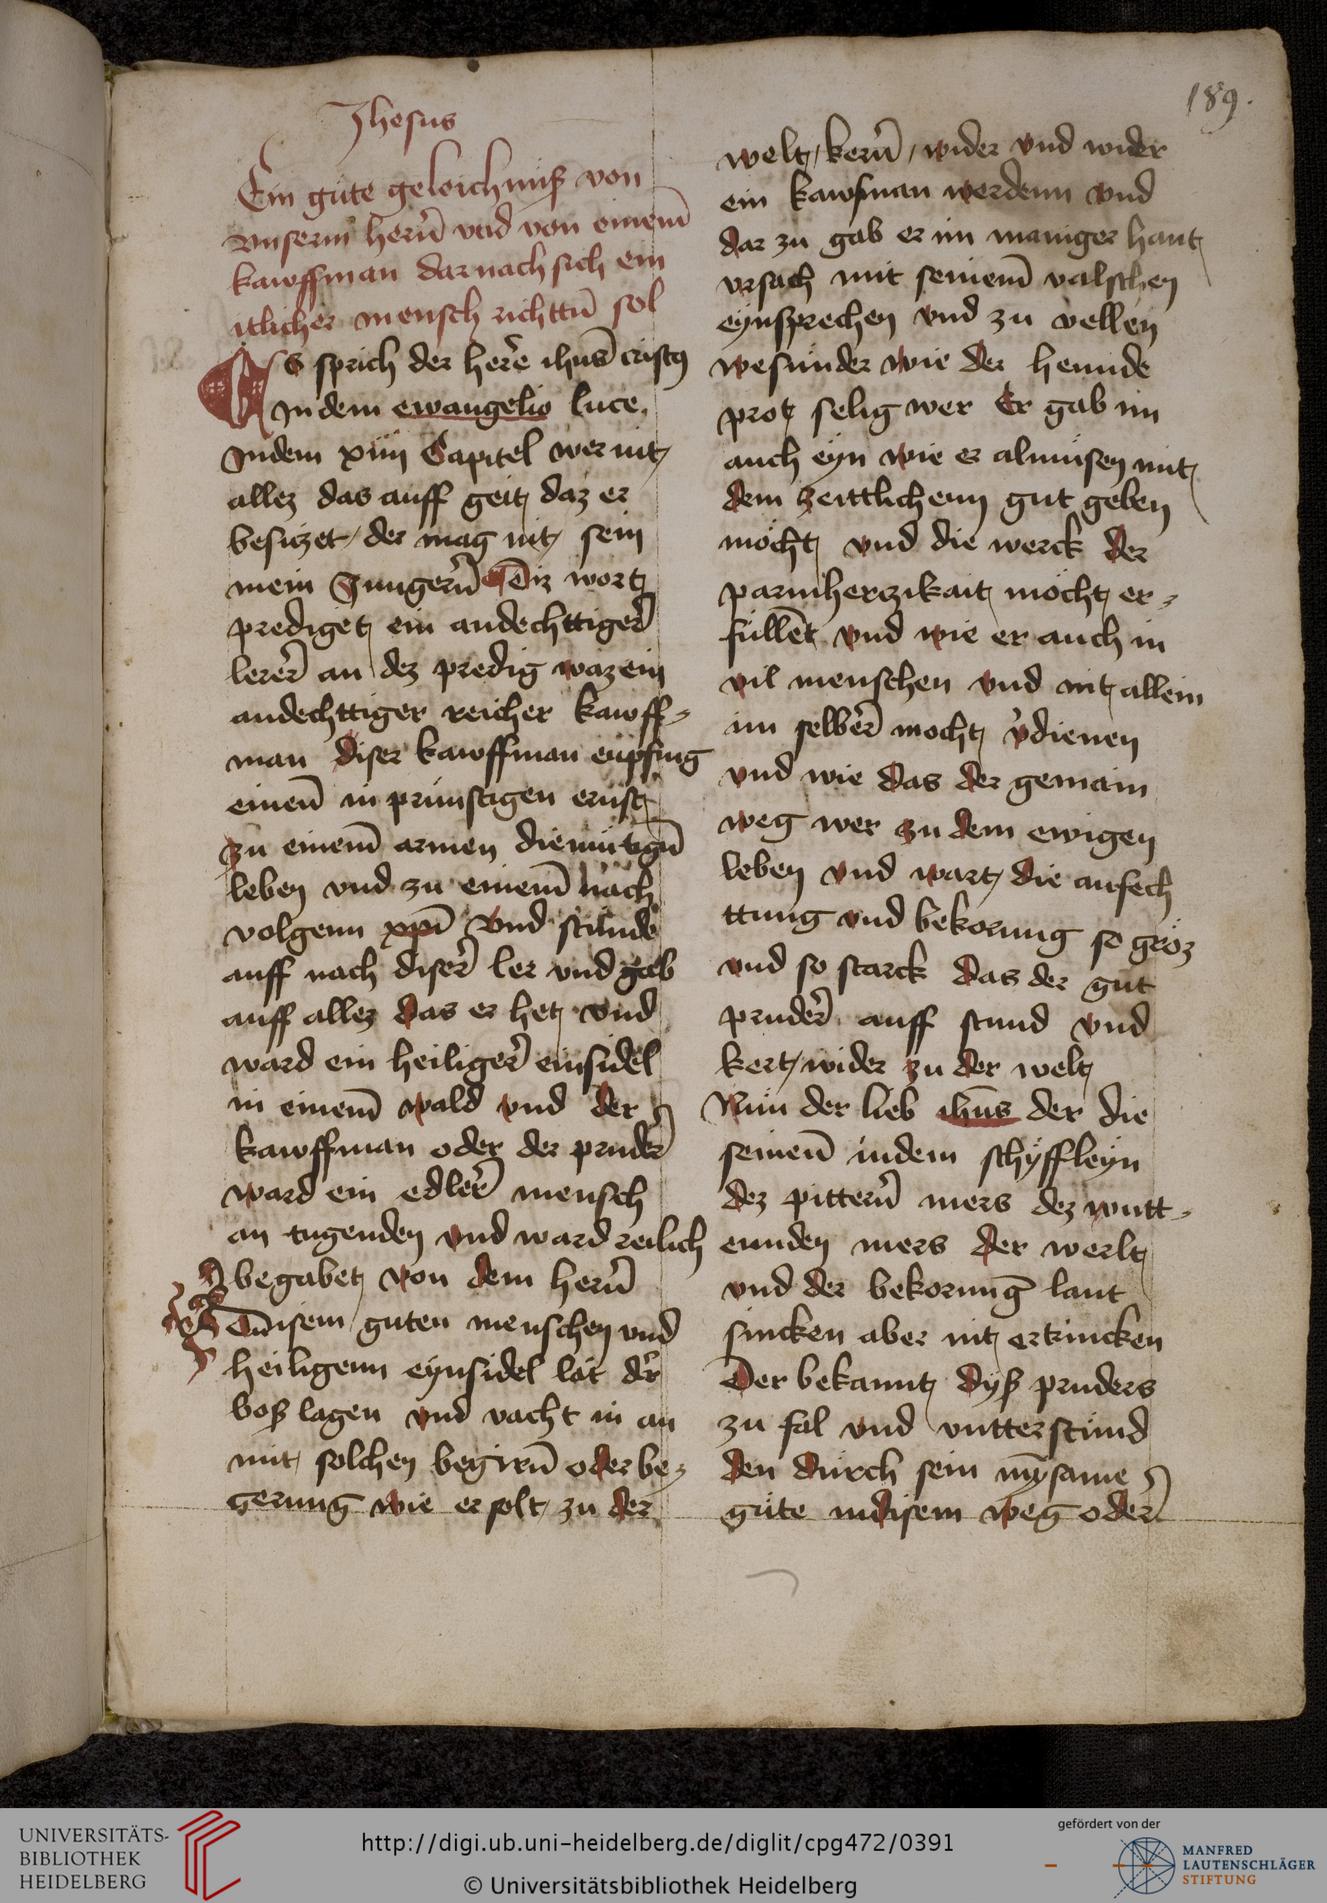 189.
Jhesus
Ein gute geleichniß von
vnserm herñ vnd von einem̃
kawffman darnach sich ein
itlicher mensch richttñ sol
Es sprich der here ihus̃ cristꝯ
Jn dem ewangelio luce
Jndem xiiij Capitel wer nit
allez das auff geit daz er
besiczet der mag nit sein
mein Jungerñ Diz wort
prediget ein andechttiger̃
lerer̃ an dez predig waz ein
andechttiger reicher kawff-
man diser kawffman enpfing
einen̄ in prunstigen ernst
zu einem̃ armen diemutigñ
leben vnd zu einem̃ nach
volgenn xpi̅ vnd stunde
auff nach diser̃ ler vnd gab
auff allez das er het vnd
ward ein heiliger̃ einsidel
in einem̃ wald vnd der
kawffman oder der pruder̃
ward ein edler̃ mensch
an tugenden vnd ward reilich
begabet von dem herñ
disem guten menschen vnd
heiligenn eynsidel lat dr̃
boß lagen vnd vacht in an
mit solchen begirñ oder be-
gerung wie er solt zu der
welt kerñ wider vnd wider
ein kawfman werdenn vnd
dar zu gab er im maniger hant
vrsach mit seinem̃ valschen
eynsprechen vnd zu vellen
wesunder wie der hemide
prot selig wer Er gab im
auch eyn wie er almusen mit
dem zeittlichenn gut geben
mocht vnd die werck der
parmherczikait mocht er-
fullet vnd wie er auch in
vil menschen vnd nit allein
im selber̃ mocht v̉dienen
vnd wie das der gemain
weg wer zu dem ewigen
leben vnd wart die anfech
ttung vnd bekorung so groz
vnd so starck das der gut
pruder̃ auff stund vnd
kert wider zu der welt
Nun der lieb ihus̃ der die
seinen̄ indem schyffleyn
dez pitterñ mers dez wutt-
ennden mers der werlt
vnd der bekorung̃ laut
sincken aber nit ertrincken
Der bekannt dyß pruders
zu fal vnd vntterstund
den durch sein my̅same
gute indisem weg oder̃
UNIVERSITÄTS-
BIBLIOTHEK
HEIDELBERG
http://digi.ub.uni-heidelberg.de/diglit/cpg472/0391
© Universitätsbibliothek Heidelberg
gefördert von der
MANFRED
LAUTENSCHLÄGER
STIFTUNG